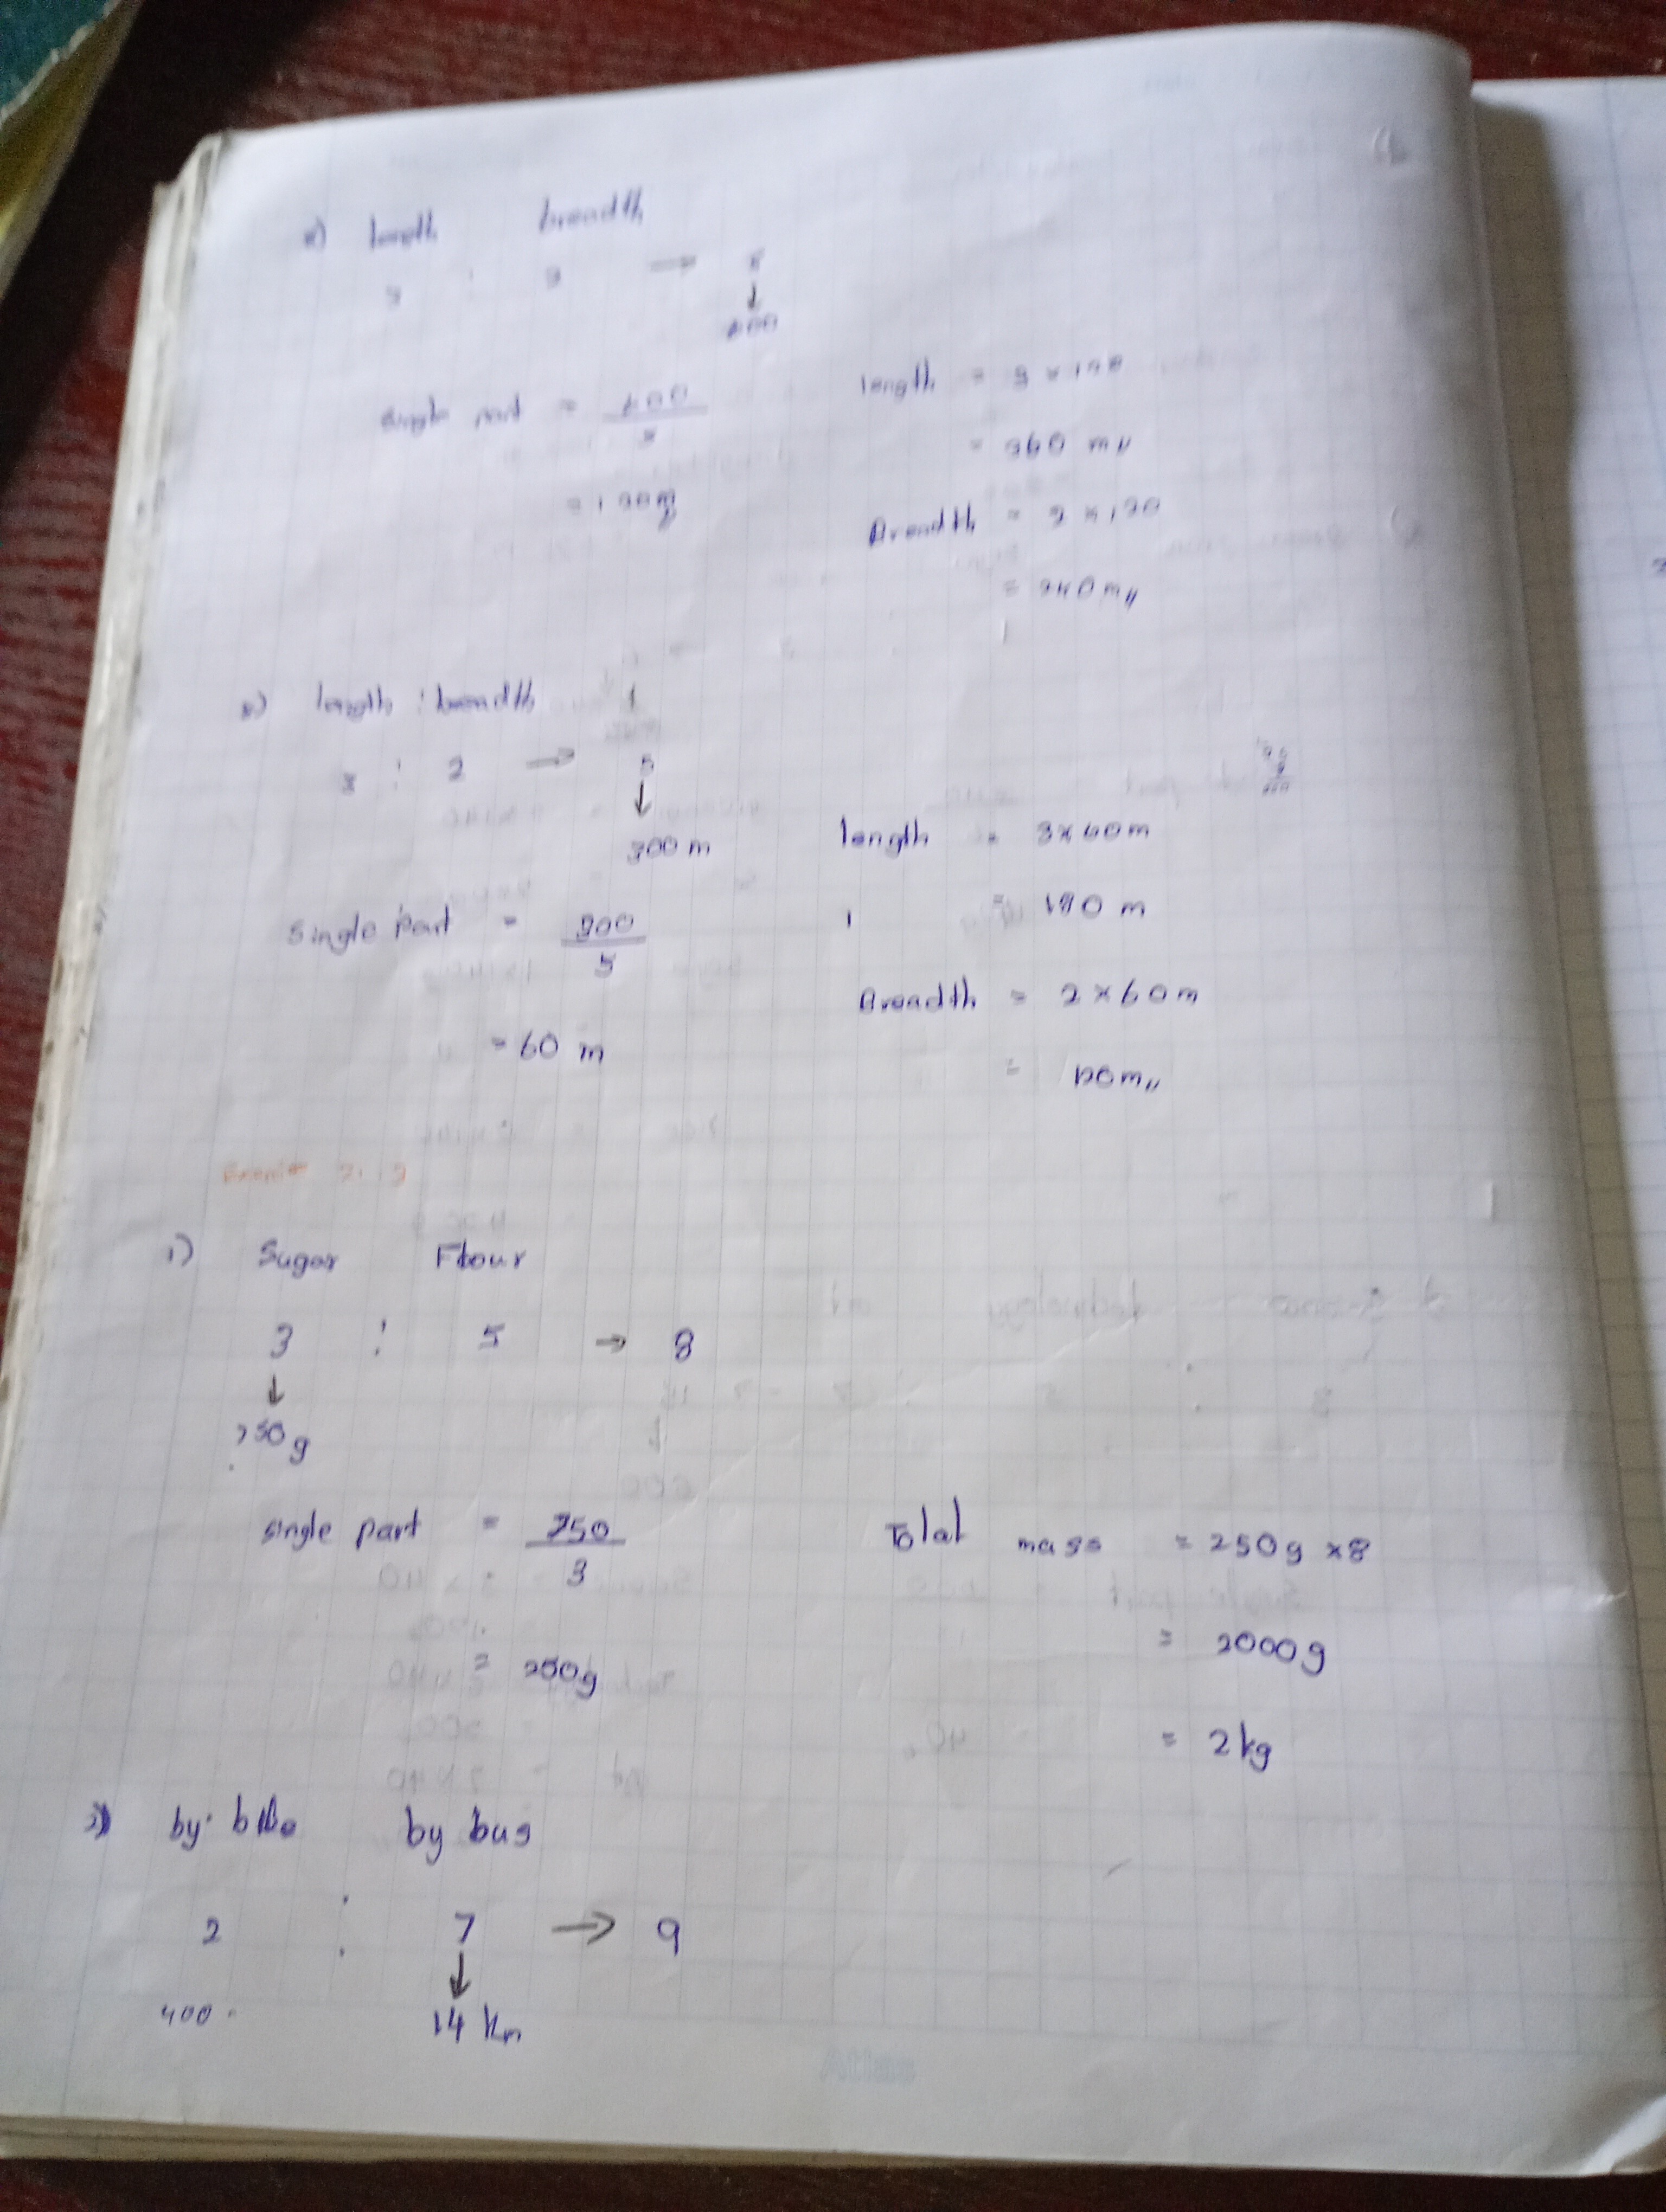 length breadth
3 : 2 → 5
↓
600
single part = 600
5
= 120 m
length = 3 × 120
= 360 m
Breadth = 2 × 120
= 240 m
length : breadth
3 : 2 → 5
↓
300 m
single part = 300
5
= 60 m
length = 3 × 60 m
= 180 m
Breadth = 2 × 60 m
= 120 m
1) Sugar Flour
3 : 5 → 8
↓
750 g
single part = 750
3
= 250g
Total mass = 250g × 8
= 2000g
= 2 kg
2) by bike by bus
2 : 7 → 9
↓
400 14 km
Atlas